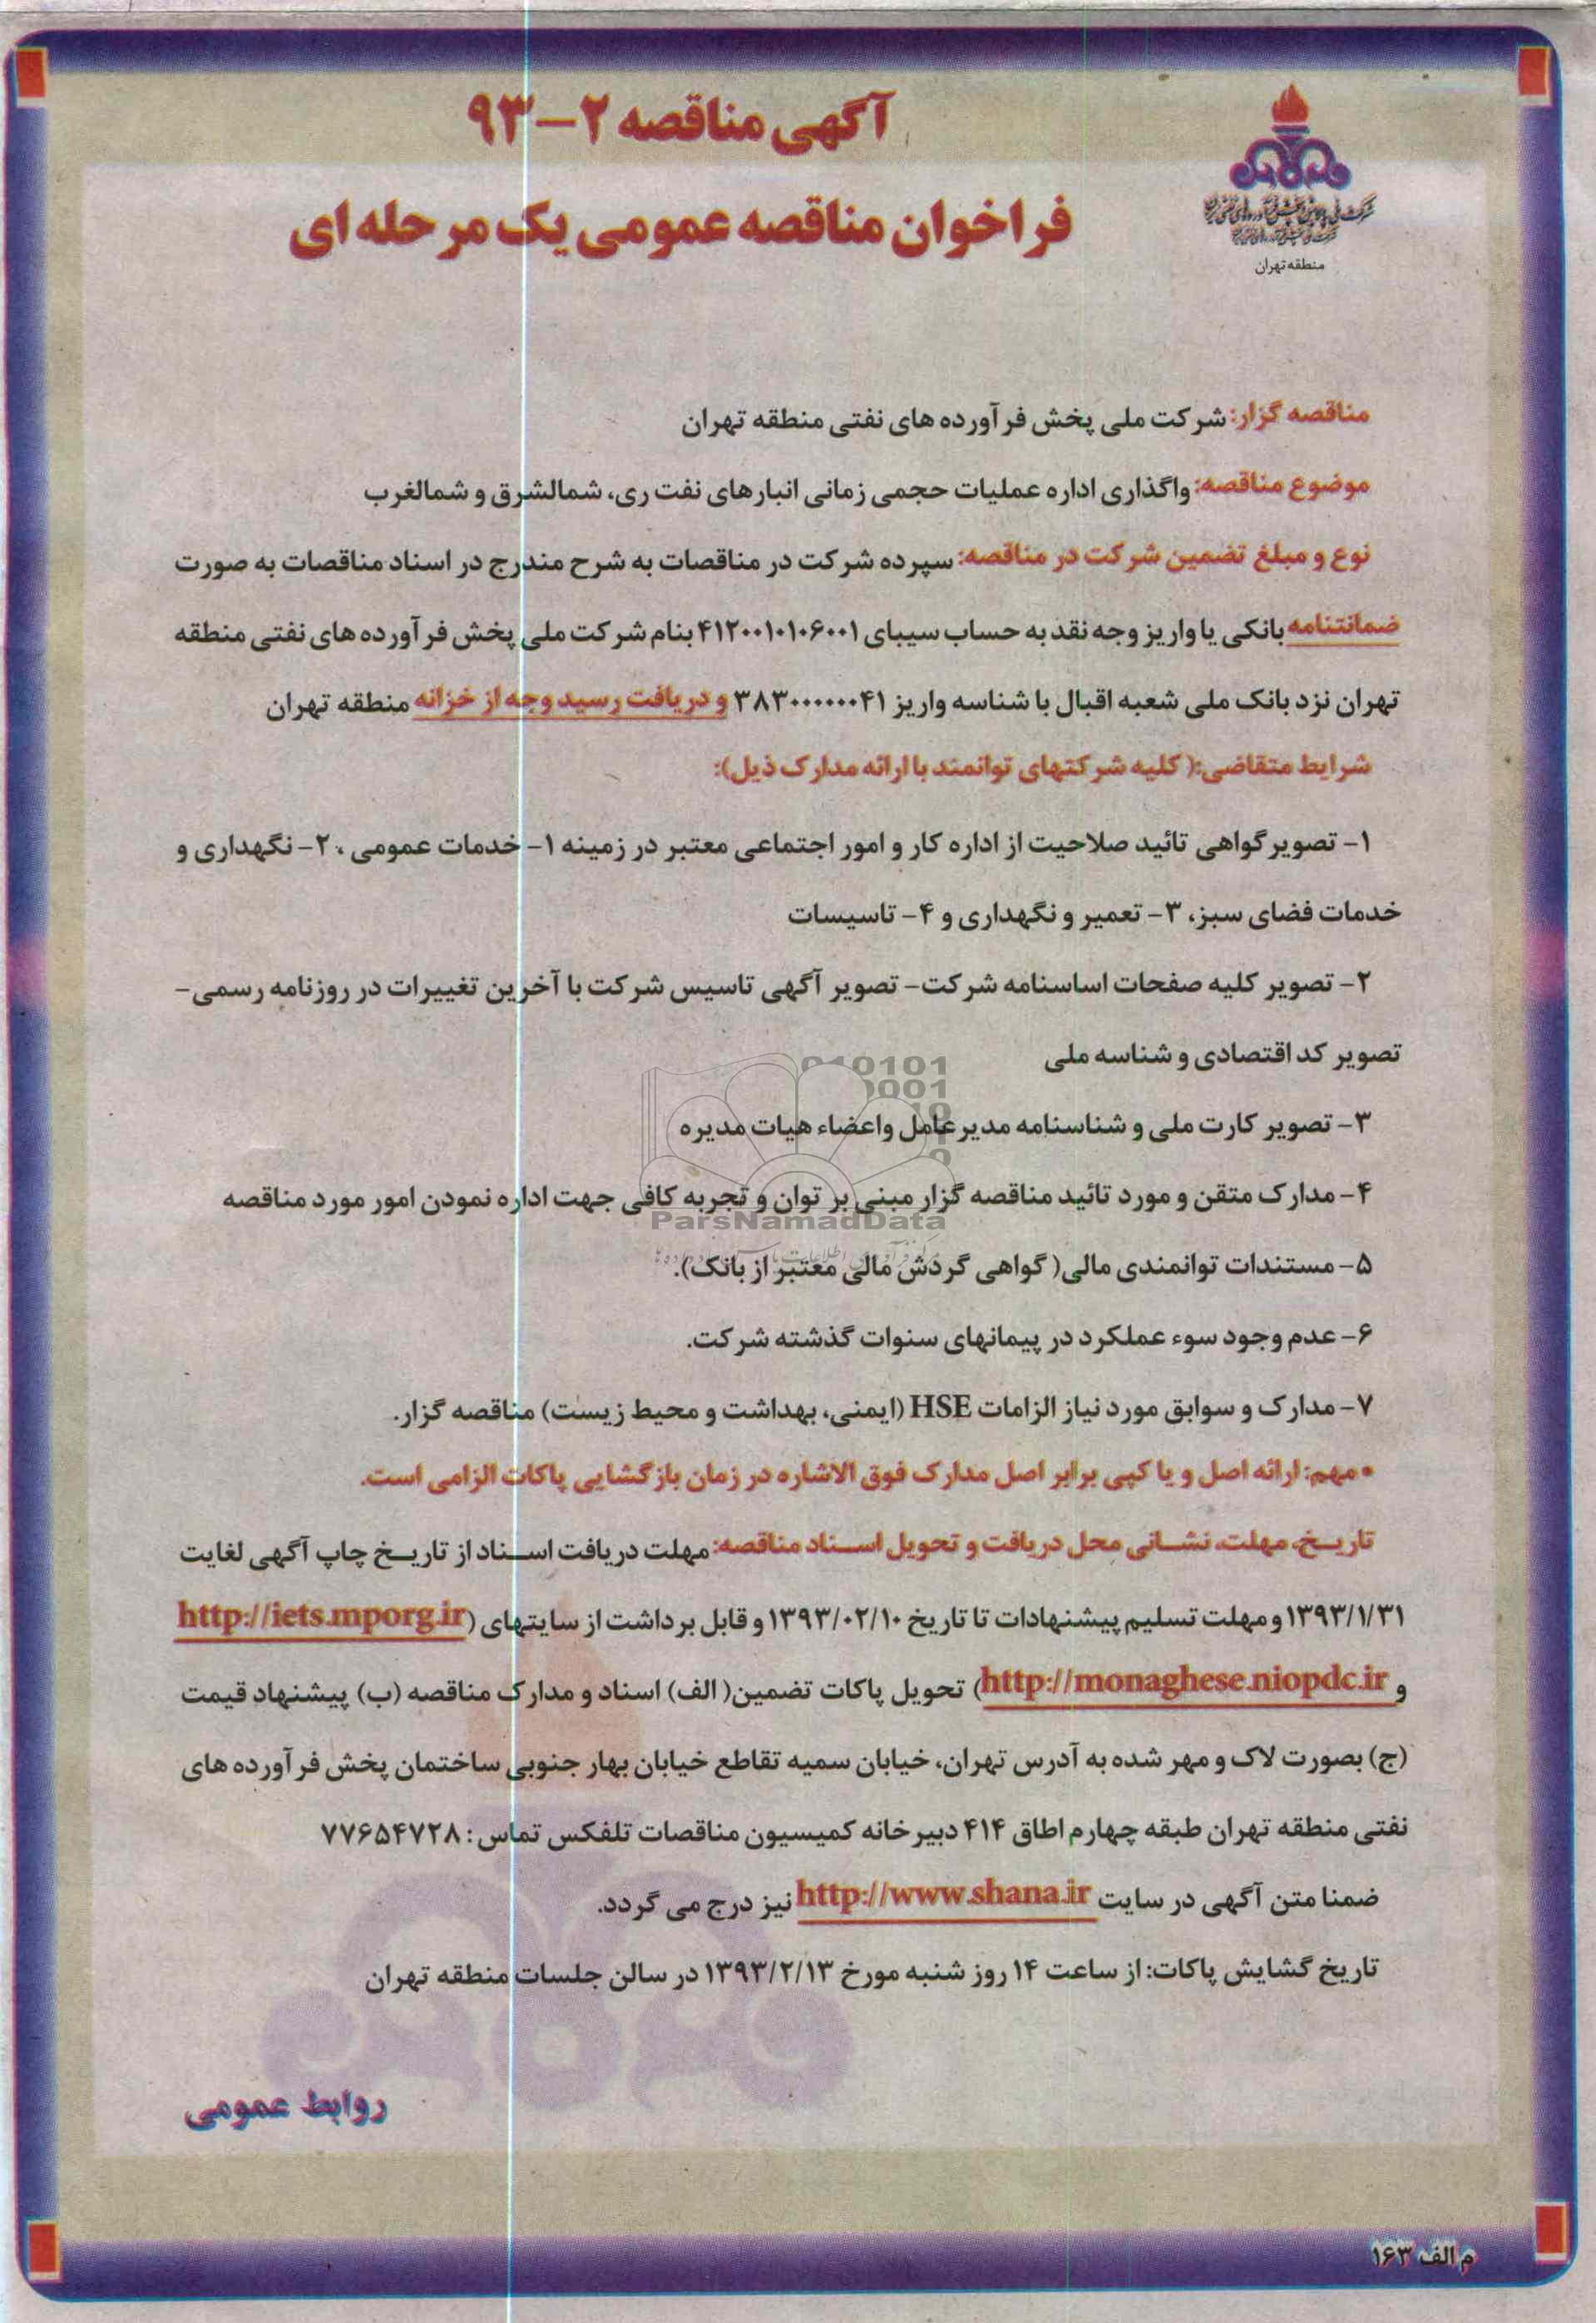 آگهی مناقصه ۲-۹۳
فراخوان مناقصه عمومی یک مرحله ای
منطقه تهران
مناقصه گزار: شرکت ملی پخش فرآورده های نفتی منطقه تهران
موضوع مناقصه: واگذاری اداره عملیات حجمی زمانی انبارهای نفت ری، شمالشرق و شمالغرب
نوع و مبلغ تضمین شرکت در مناقصه: سپرده شرکت در مناقصات به شرح مندرج در اسناد مناقصات به صورت
ضمانتنامه بانکی یا واریز وجه نقد به حساب سیبای ۴۱۲۰۰۱۰۱۰۶۰۰۱ بنام شرکت ملی پخش فرآورده های نفتی منطقه
تهران نزد بانک ملی شعبه اقبال با شناسه واریز ۳۸۳۰۰۰۰۰۰۴۱ و دریافت رسید وجه از خزانه منطقه تهران
شرایط متقاضی:( کلیه شرکتهای توانمند با ارائه مدارک ذیل):
۱- تصویر گواهی تائید صلاحیت از اداره کار و امور اجتماعی معتبر در زمینه ۱- خدمات عمومی ، ۲- نگهداری و
خدمات فضای سبز، ۳- تعمیر و نگهداری و ۴- تاسیسات
۲- تصویر کلیه صفحات اساسنامه شرکت- تصویر آگهی تاسیس شرکت با آخرین تغییرات در روزنامه رسمی-
تصویر کد اقتصادی و شناسه ملی
۳- تصویر کارت ملی و شناسنامه مدیرعامل واعضاء هیات مدیره
۴- مدارک متقن و مورد تائید مناقصه گزار مبنی بر توان و تجربه کافی جهت اداره نمودن امور مورد مناقصه
ParsNamadData
۵- مستندات توانمندی مالی( گواهی گردش مالی معتبر از بانک).
۶- عدم وجود سوء عملکرد در پیمانهای سنوات گذشته شرکت.
۷- مدارک و سوابق مورد نیاز الزامات HSE (ایمنی، بهداشت و محیط زیست) مناقصه گزار.
• مهم: ارائه اصل و یا کپی برابر اصل مدارک فوق الاشاره در زمان بازگشایی پاکات الزامی است.
تاریخ، مهلت، نشانی محل دریافت و تحویل اسناد مناقصه: مهلت دریافت اسناد از تاریخ چاپ آگهی لغایت
۱۳۹۳/۱/۳۱ و مهلت تسلیم پیشنهادات تا تاریخ ۱۳۹۳/۰۲/۱۰ و قابل برداشت از سایتهای (http://iets.mporg.ir
و http://monaghese.niopdc.ir) تحویل پاکات تضمین( الف) اسناد و مدارک مناقصه (ب) پیشنهاد قیمت
(ج) بصورت لاک و مهر شده به آدرس تهران، خیابان سمیه تقاطع خیابان بهار جنوبی ساختمان پخش فرآورده های
نفتی منطقه تهران طبقه چهارم اطاق ۴۱۴ دبیرخانه کمیسیون مناقصات تلفکس تماس: ۷۷۶۵۴۷۲۸
ضمنا متن آگهی در سایت http://www.shana.ir نیز درج می گردد.
تاریخ گشایش پاکات: از ساعت ۱۴ روز شنبه مورخ ۱۳۹۳/۲/۱۳ در سالن جلسات منطقه تهران
روابط عمومی
م الف ۱۶۳